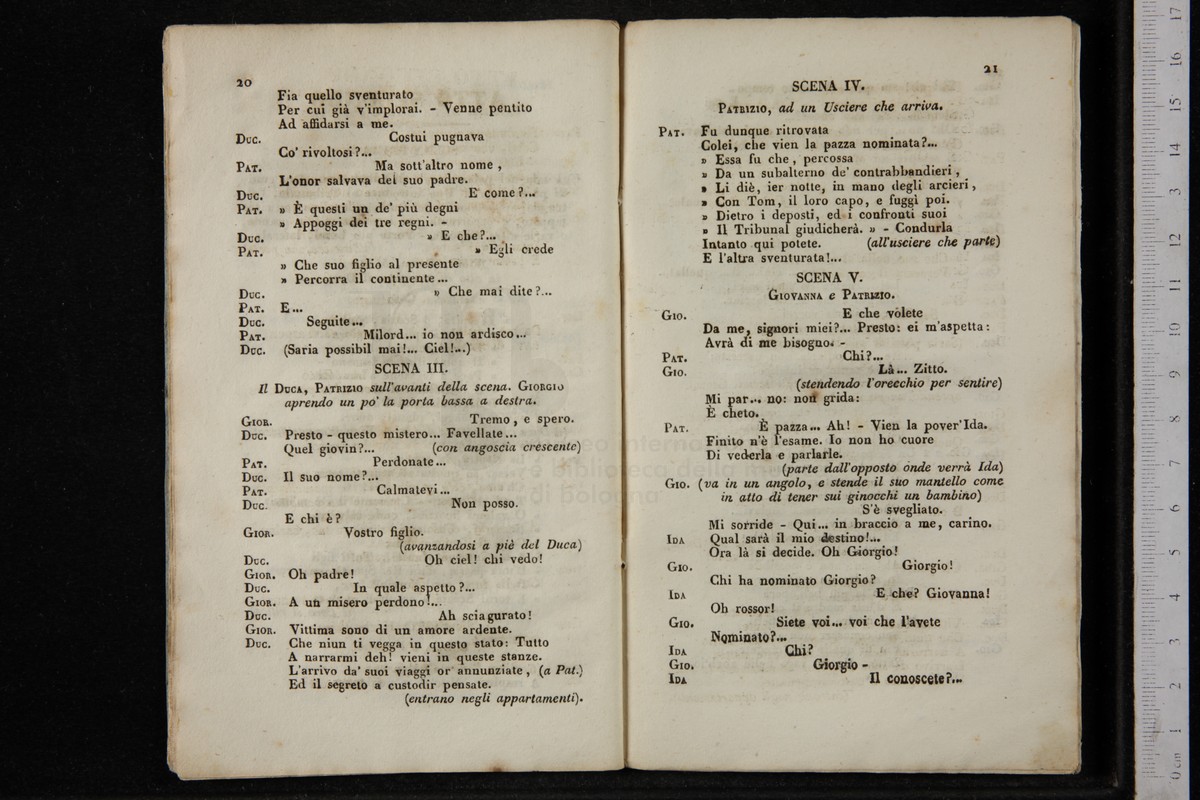 20
Fia quello sventurato
Per cui già v'implorai. - Venne pentito
Ad affidarsi a me.
Duc. Costui pugnava
Co' rivoltosi?...
Pat. Ma sott'altro nome,
L'onor salvava del suo padre.
Duc. E come?...
Pat. » È questi un de' più degni
» Appoggi dei tre regni. -
Duc. » E che?...
Pat. » Egli crede
» Che suo figlio al presente
» Percorra il continente...
Duc. » Che mai dite?...
Pat. E...
Duc. Seguite...
Pat. Milord... io non ardisco...
Duc. (Saria possibil mai!... Ciel!...)
SCENA III.
Il Duca, Patrizio sull'avanti della scena. Giorgio
aprendo un po' la porta bassa a destra.
Gior. Tremo, e spero.
Duc. Presto - questo mistero... Favellate...
Quel giovin?... (con angoscia crescente)
Pat. Perdonate...
Duc. Il suo nome?...
Pat. Calmatevi...
Duc. Non posso.
E chi è?
Gior. Vostro figlio.
(avanzandosi a piè del Duca)
Duc. Oh ciel! chi vedo!
Gior. Oh padre!
Duc. In quale aspetto?...
Gior. A un misero perdono!...
Duc. Ah sciagurato!
Gior. Vittima sono di un amore ardente.
Duc. Che niun ti vegga in questo stato: Tutto
A narrarmi deh! vieni in queste stanze.
L'arrivo da' suoi viaggi or annunziate, (a Pat.)
Ed il segreto a custodir pensate.
(entrano negli appartamenti).
21
SCENA IV.
Patrizio, ad un Usciere che arriva.
Pat. Fu dunque ritrovata
Colei, che vien la pazza nominata?...
» Essa fu che, percossa
» Da un subalterno de' contrabbandieri,
» Li diè, ier notte, in mano degli arcieri,
» Con Tom, il loro capo, e fuggì poi.
» Dietro i deposti, ed i confronti suoi
» Il Tribunal giudicherà. » - Condurla
Intanto qui potete. (all'usciere che parte)
E l'altra sventurata!...
SCENA V.
Giovanna e Patrizio.
Gio. E che volete
Da me, signori miei?... Presto: ei m'aspetta:
Avrà di me bisogno. -
Pat. Chi?...
Gio. Là... Zitto.
(stendendo l'orecchio per sentire)
Mi par... no: non grida:
È cheto.
Pat. È pazza... Ah! - Vien la pover'Ida.
Finito n'è l'esame. Io non ho cuore
Di vederla e parlarle.
(parte dall'opposto onde verrà Ida)
Gio. (va in un angolo, e stende il suo mantello come
in atto di tener sui ginocchi un bambino)
S'è svegliato.
Mi sorride - Qui... in braccio a me, carino.
Ida Qual sarà il mio destino!...
Ora là si decide. Oh Giorgio!
Gio. Giorgio!
Chi ha nominato Giorgio?
Ida E che? Giovanna!
Oh rossor!
Gio. Siete voi... voi che l'avete
Nominato?...
Ida Chi?
Gio. Giorgio -
Ida Il conoscete?...